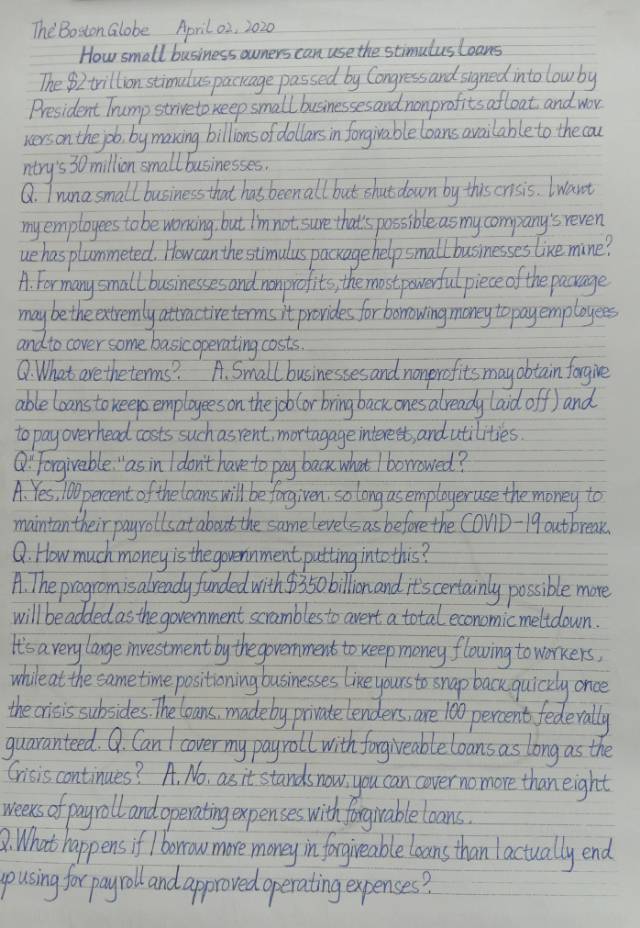 The Boston Globe April 02, 2020
How small business owners can use the stimulus loans
The $2 trillion stimulus package passed by Congress and signed into low by
President Trump strive to keep small businesses and nonprofits afloat, and wor
kers on the job, by making billions of dollars in forgivable loans available to the cou
ntry's 30 million small businesses.
Q. I run a small business that has been all but shut down by this crisis. I want
my employees to be working, but I'm not sure that's possible as my company's reven
ue has plummeted. How can the stimulus package help small businesses like mine?
A. For many small businesses and nonprofits, the most powerful piece of the package
may be the extremly attractive terms it provides for borrowing money to pay employees
and to cover some basic operating costs.
Q. What are the terms? A. Small businesses and nonprofits may obtain forgive
able loans to keep employees on the job (or bring back ones already laid off) and
to pay overhead costs such as rent, mortagage interest, and utilities.
Q. "Forgivable," as in I don't have to pay back what I borrowed?
A. Yes, 100 percent of the loans will be forgiven, so long as employer use the money to
maintan their payrolls at about the same levels as before the COVID-19 outbreak.
Q. How much money is the government putting into this?
A. The progrom is already funded with $350 billion and it's certainly possible more
will be added as the government scrambles to avert a total economic meltdown.
It's a very large investment by the government to keep money flowing to workers,
while at the same time positioning businesses like yours to snap back quickly once
the crisis subsides. The loans, made by private lenders, are 100 percent federally
guaranteed. Q. Can I cover my payroll with forgiveable loans as long as the
Crisis continues? A. No, as it stands now, you can cover no more than eight
weeks of payroll and operating expenses with forgivable loans.
Q. What happens if I borrow more money in forgiveable loans than I actually end
up using for payroll and approved operating expenses?